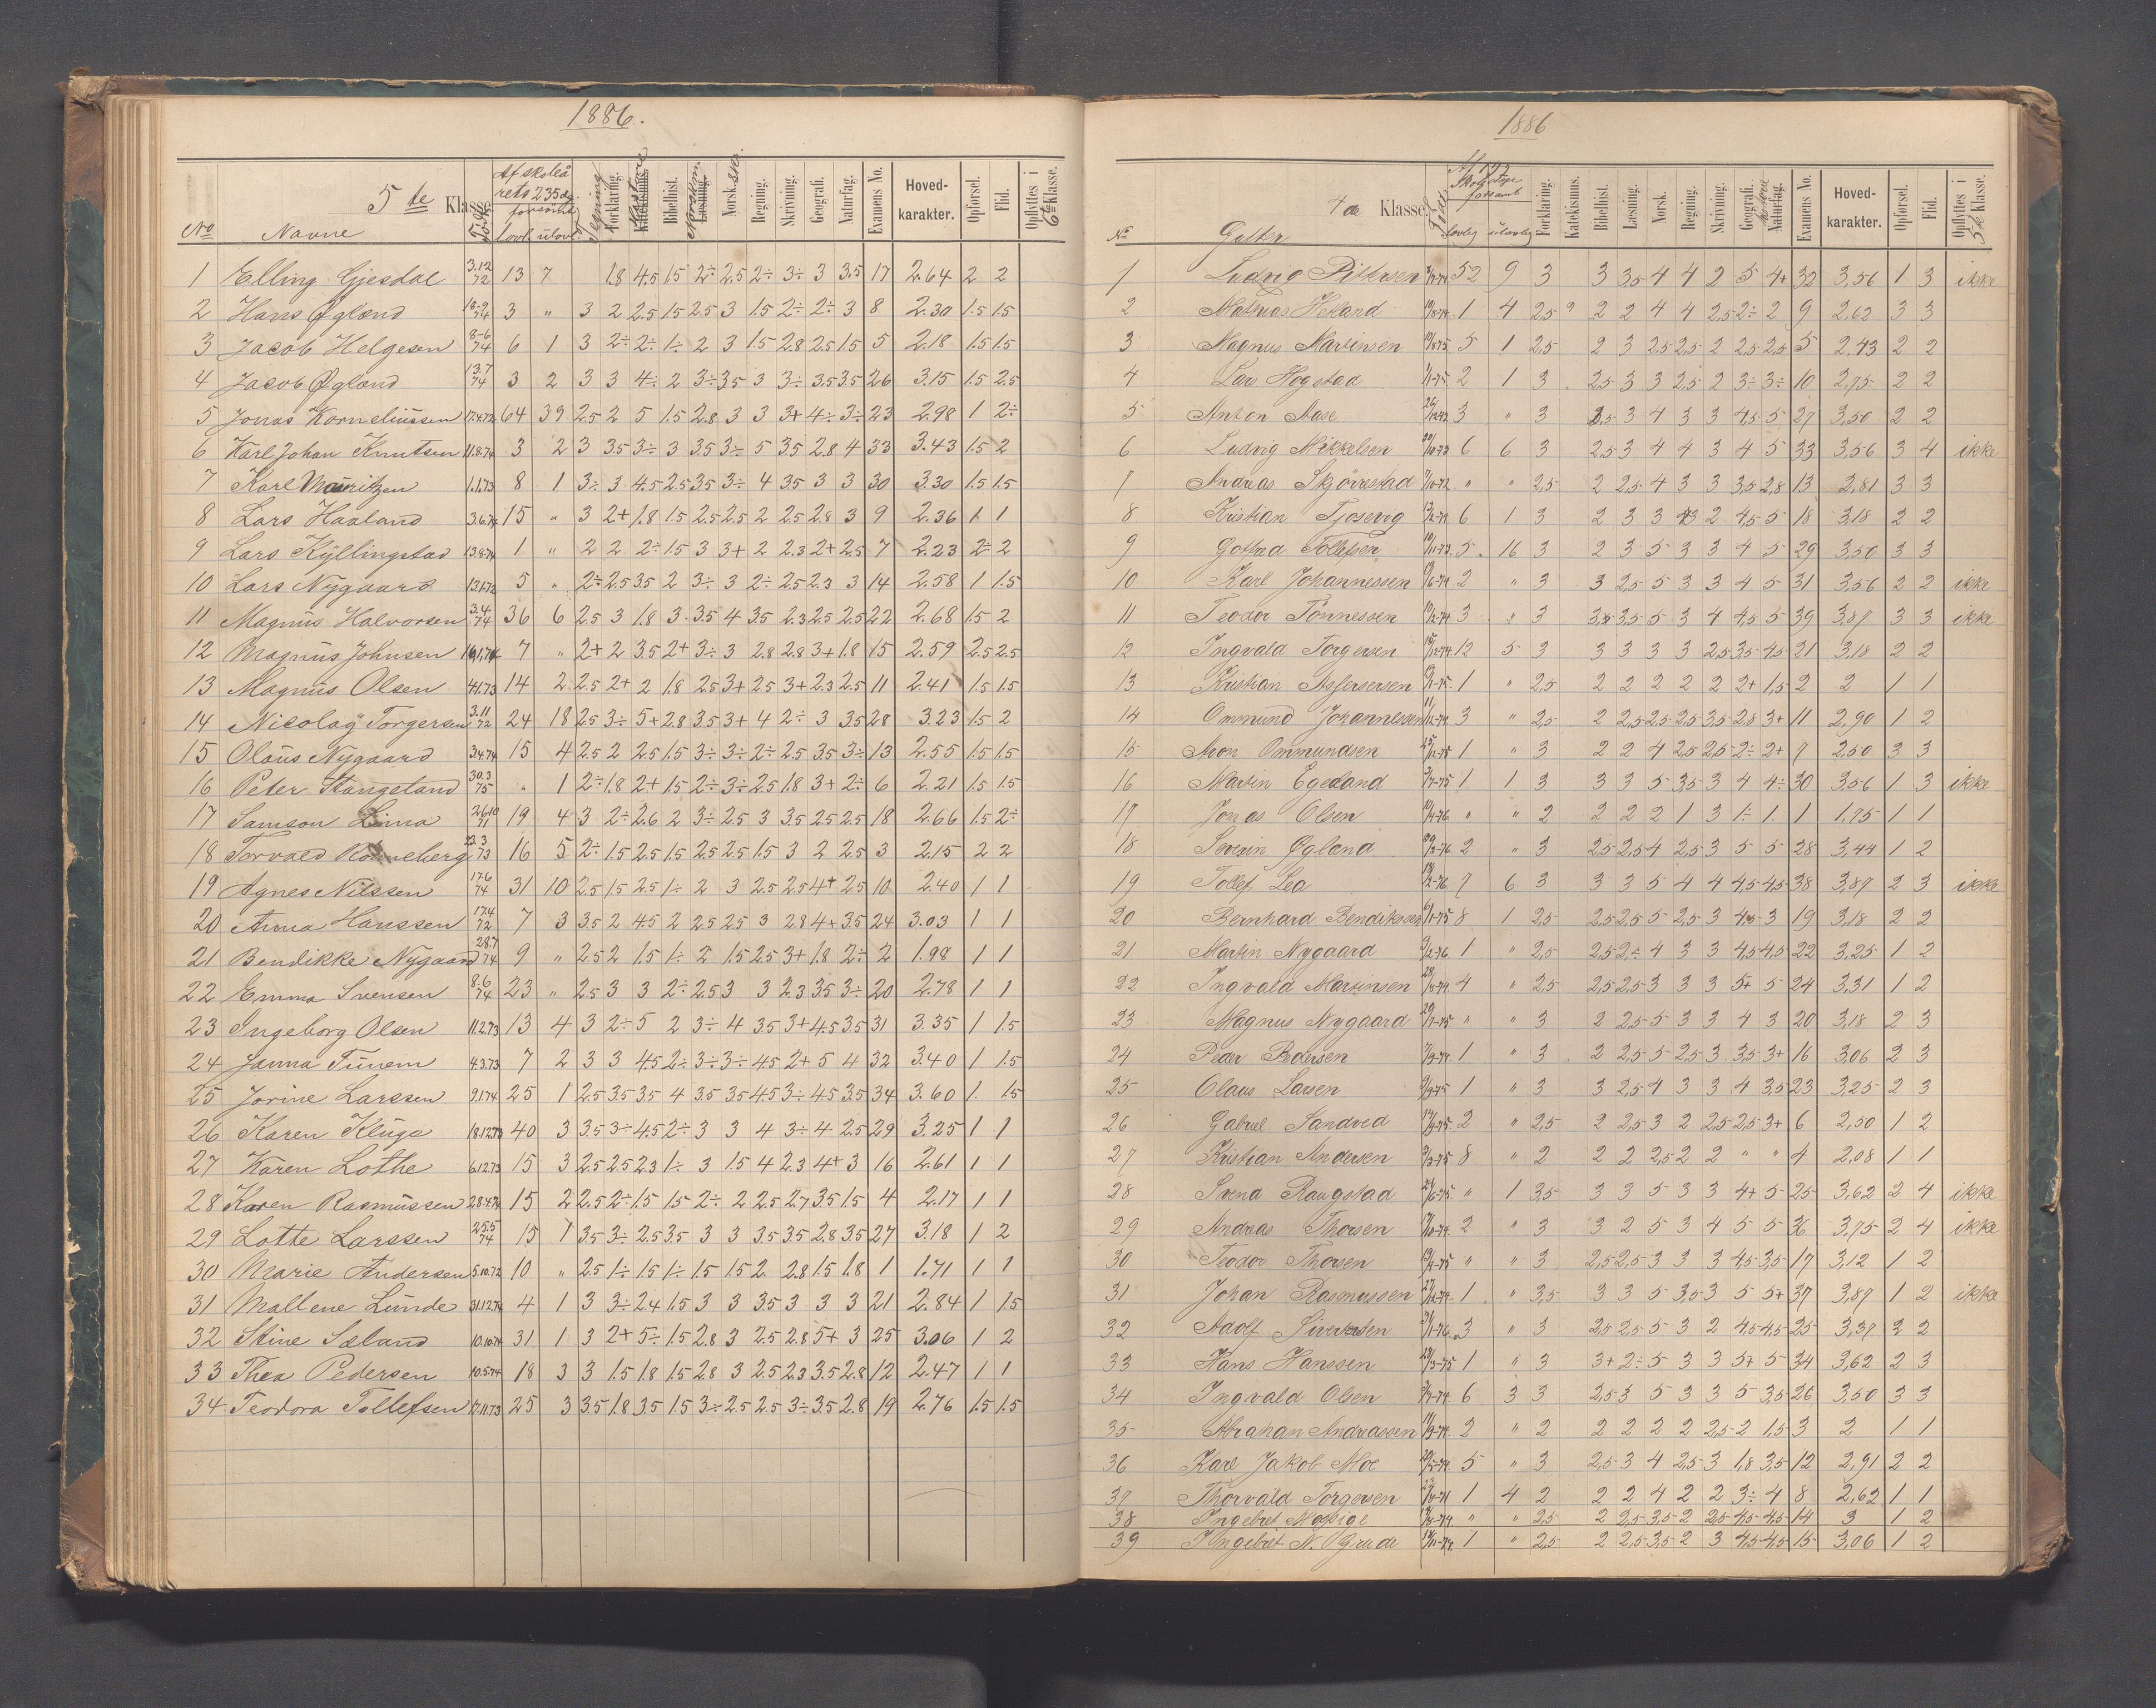 1886.
5te Klasse
Af skoleårets 235 dg. forsömte
No Navne Född lovl. ulovl. Tegning Forklaring. Bibelhist. Norsk skr. Regning. Skrivning. Geografi. Naturfag. Examens No. Hoved-karakter. Opførsel. Flid. Opflyttes i 6te Klasse.
1 Elling Gjesdal 3.12 72 13 7 1.8 4.5 1.5 2÷ 2.5 2÷ 3÷ 3 3.5 17 2.64 2 2
2 Hans Øgland 18-9 74 3 " 3 2 2.5 1.5 2.5 3 1.5 2÷ 2÷ 3 8 2.30 1.5 1.5
3 Jacob Helgesen 8-6 74 6 1 3 2÷ 2÷ 1÷ 2 3 1.5 2.8 2.5 1.5 5 2.18 1.5 1.5
4 Jacob Øgland 13.7 74 3 2 3 3 4÷ 2 3÷ 3.5 3 3÷ 3.5 3.5 26 3.15 1.5 2.5
5 Jonas Korneliussen 17.4.72 64 39 2.5 2 5 1.5 2.8 3 3 3+ 4÷ 3÷ 23 2.98 1 2÷
6 Karl Johan Knutsen 11.8.74 3 2 3 3.5 3÷ 3 3.5 3÷ 5 3.5 2.8 4 33 3.43 1.5 2
7 Karl Mauritzen 1.1.73 8 1 3÷ 3 4.5 2.5 3.5 3÷ 4 3.5 3 3 30 3.30 1.5 1.5
8 Lars Haaland 3.6.74 15 " 3 2+ 1.8 1.5 2.5 2.5 2 2.5 2.8 3 9 2.36 1 1
9 Lars Kyllingstad 13.8.74 1 " 2 2 2÷ 1.5 3 3+ 2 2.3 2+ 2.5 7 2.23 2÷ 2
10 Lars Nygaard 13.1.72 5 " 2÷ 2.5 3.5 2 3÷ 3 2÷ 2.5 2.3 3 14 2.58 1 1.5
11 Magnus Halvorsen 3.4 74 36 6 2.5 3 1.8 3 3.5 4 3.5 2.3 2.5 2.5 22 2.68 1.5 2
12 Magnus Johnsen 16.1.74 7 " 2+ 2 3.5 2+ 3÷ 3 2.8 2.8 3+ 1.8 15 2.59 2.5 2.5
13 Magnus Olsen 4.1.73 14 2 2.5 2+ 2 1.8 2.5 3+ 2.5 3+ 2.3 2.5 11 2.41 1.5 1.5
14 Nicolay Torgersen 3.11 72 24 18 2.5 3÷ 5+ 2.8 3.5 3+ 4 2÷ 3 3.5 28 3.23 1.5 2
15 Olaus Nygaard 3.4.74 15 4 2.5 2 2.5 1.5 3÷ 3÷ 2÷ 2.5 3.5 3÷ 13 2.55 1.5 1.5
16 Peter Stangeland 30.3 75 " 1 2÷ 1.8 2+ 1.5 2÷ 3÷ 2.5 1.8 3+ 2÷ 6 2.21 1.5 1.5
17 Samson Lima 26.10 71 19 4 3 2÷ 2.6 2 3÷ 2.5 3 3.5 2.5 2.5 18 2.66 1.5 2÷
18 Torvald Rönneberg 22.3 73 16 5 2÷ 1.5 2.5 1.5 2.5 2.5 1.5 3 2 2.5 3 2.15 2 2
19 Agnes Nilssen 17.6 74 31 10 2.5 1.5 2.5 1÷ 2 3 2.5 2.5 4+ 2.5 10 2.40 1 1
20 Anna Hanssen 17.4 72 7 3 3.5 2 4.5 2 2.5 2.5 3 2.8 4+ 3.5 24 3.03 1 1
21 Bendikke Nygaard 28.7 74 9 " 2.5 2 1.5 1÷ 2 1.5 2.5 3+ 1.8 2÷ 2 1.98 1 1
22 Emma Svensen 8.6 74 23 " 2.5 3 3 2÷ 2.5 3 3 2.3 3.5 3÷ 20 2.78 1 1
23 Ingeborg Olsen 11.2.73 13 4 3 2÷ 5 2 3÷ 4 3.5 3+ 4.5 3.5 31 3.35 1 1.5
24 Janna Tunem 4.3.73 7 2 3 3 4.5 2÷ 3÷ 3÷ 4.5 2+ 5 4 32 3.40 1 1.5
25 Jorine Larssen 9.1.74 25 1 2.5 3.5 3.5 4 3.5 3.5 4.5 3÷ 4.5 3.5 34 3.60 1. 1.5
26 Karen Kluge 18.12.73 40 3 3.5 3÷ 4.5 2÷ 3 3 4 3÷ 4 2.5 29 3.25 1 1
27 Karen Lothe 6.12.73 15 3 2.5 2.5 2.3 1÷ 3 1.5 4 2.3 4+ 3 16 2.61 1 1
28 Karen Rasmussen 28.4.74 15 2 2.5 2÷ 1.5 1.5 2÷ 2 2.5 2.7 3.5 1.5 4 2.17 1 1
29 Lotte Larssen 25.5 74 15 1 3.5 3÷ 2.5 3.5 3 3 3.5 3.5 2.8 3.5 27 3.18 1 2
30 Marie Andersen 5.10.72 10 " 2.5 1÷ 1.5 1÷ 1.5 1.5 2. 2.8 1.5 1.8 1 1.71 1 1
31 Mallene Lunde 31.12.74 4 1 3 3÷ 2.4 1.5 3 3 3.5 3 3 3 21 2.84 1 1.5
32 Stine Seland 10.10.74 31 1 3 2+ 5÷ 1.5 2.8 3 2.5 2.8 5+ 3 25 3.06 1 2
33 Thea Pedersen 10.5.74 18 3 3 1.5 1.8 1.5 2.8 3 2.5 2.3 3.5 2.8 12 2.47 1 1
34 Teodora Tollefsen 17.11.73 25 3 3.5 1.8 3.5 1.5 3÷ 2.5 2.5 3÷ 3.5 2.8 19 2.76 1.5 1.5
1886
4de Klasse
No Gutter lovlig ulovlig Forklaring. Katekismus. Bibelhist. Læsning. Norsk. Regning. Skrivning. Geografi. Naturfag. Examens No. Hoved-karakter. Opførsel. Flid. Opflyttes i 5te Klasse.
1 Ludvig Pittersen 52 9 3 3 3,5 4 4 2 5 4+ 32 3,56 1 3 ikke
2 Mathias Hetland 1 4 2,5 2 2 4 4 2,5 2÷ 2 9 2,62 3 3
3 Magnus Martinsen 5 1 2,5 2 3 2,5 2,5 2 2,5 2,5 5 2,43 2 2
4 Lars Hogstad 2 1 3 2,5 3 3 2,5 2 3÷ 3÷ 10 2,75 2 2
5 Anton Aase 3 " 3 3,5 3 4 3 3 4,5 5 27 3,50 2 2
6 Ludvig Mikkelsen 6 6 3 2,5 3 4 4 3 4 5 33 3,56 3 4 ikke
7 Andreas Skjörestad " " 2,5 2 2,5 4 3 3 3,5 2,8 13 2,81 3 3
8 Kristian Tjosevig 6 1 3 2 3 3 3 2 4,5 5 18 3,18 2 2
9 Gotfred Tollefsen 5 16 3 2 3 5 3 3 4 5 29 3,50 3 3
10 Karl Johannessen 2 " 3 3 2,5 5 3 3 4 5 31 3,56 2 2 ikke
11 Teodor Tönnessen 3 " 3 3,5 3,5 5 3 4 4,5 5 39 3,87 3 3 ikke
12 Ingvald Torgersen 12 5 3 3 3 3 3 2,5 3,5 4,5 21 3,18 2 2
13 Kristian 1 " 2,5 2 2 2 2 2 2+ 1,5 2 2 1 1
14 Ommund Johannessen 3 " 2,5 2 2,5 2,5 2,5 3,5 2,8 3+ 11 2,90 1 2
15 Ommundsen 1 " 3 2 2 4 2,5 2,5 2÷ 2+ 7 2,50 3 3
16 Martin Egeland 1 1 3 3 3 5 3,5 3 4 4÷ 30 3,56 1 3 ikke
17 Jonas Olsen " " 2 2 2 2 1 3 1÷ 1. 1 1,75 1 1
18 Severin Øgland 2 " 3 2,5 2,5 4 2,5 3 5 5 28 3,44 1 2
19 Tollef Lea 7 6 3 3 3 5 4 4 4,5 4,5 38 3,87 2 3 ikke
20 Bernhard Bendiksen 8 1 2,5 2,5 2,5 5 2,5 3 4,5 3 19 3,18 2 2
21 Martin Nygaard 1 " 2,5 2,5 2,÷ 4 3 3 4,5 4,5 22 3,25 1 2
22 Ingvald Martinsen 4 " 2,5 2,5 2,5 3 3 3 5+ 5 24 3,31 1 2
23 Magnus Nygaard " " 3 2 2,5 5 3 3 4 3 20 3,18 2 3
24 Peder Pedersen 1 " 3 2 2,5 5 2,5 3 3,5 3+ 16 3,06 2 3
25 Olaus Larsen 1 " 3 3 2,5 4 3 3 4 3,5 23 3,25 2 3
26 Gabriel Sandved 2 " 2,5 2 2,5 3 2 2,5 2,5 3+ 6 2,50 1 2
27 Kristian Andersen 8 " 2 2 2 2,5 2 2 " " 4 2,08 1 1
28 Svend Raugstad " 1 3,5 3 3 5 3 3 4+ 5 25 3,62 2 4 ikke
29 Andreas Thorsen 2 " 3 3 2 5 3 4 5 5 36 3,75 2 4 ikke
30 Teodor Thorsen " " 3 2,5 2,5 3 3 3 4,5 3,5 17 3,12 1 2
31 Johan Rasmussen 1 " 3,5 3 3 5 3,5 3 5 5+ 37 3,87 1 2 ikke
32 Adolf Sivertsen 3 " 3 2,5 2,5 5 3 2 4,5 4,5 25 3,39 2 2
33 Hans Hanssen 1 " 3 3+ 2÷ 5 3 3 5+ 5 34 3,62 2 3
34 Ingvald Olsen 6 3 3 2,5 3 5 3 3 5 3,5 26 3,50 3 3
35 Abraham Andreassen 2 " 2 2 2 2 2 2,5 2 1,5 3 2 1 1
36 Karl Jakob Moe 5 " 3 2,5 3 4 2,5 3 1,8 3,5 12 2,91 2 2
37 Thorvald Torgersen 1 4 2 2 2 4 2 2 3÷ 4 8 2,62 1 1
38 Ingebret Mossige " " 2,5 2 2,5 3,5 2 2,5 4,5 4,5 14 3 1 2
39 Ingebret N. Grude 1 " 2,5 2 2,5 3,5 2 3 4,5 4,5 15 3,06 1 2